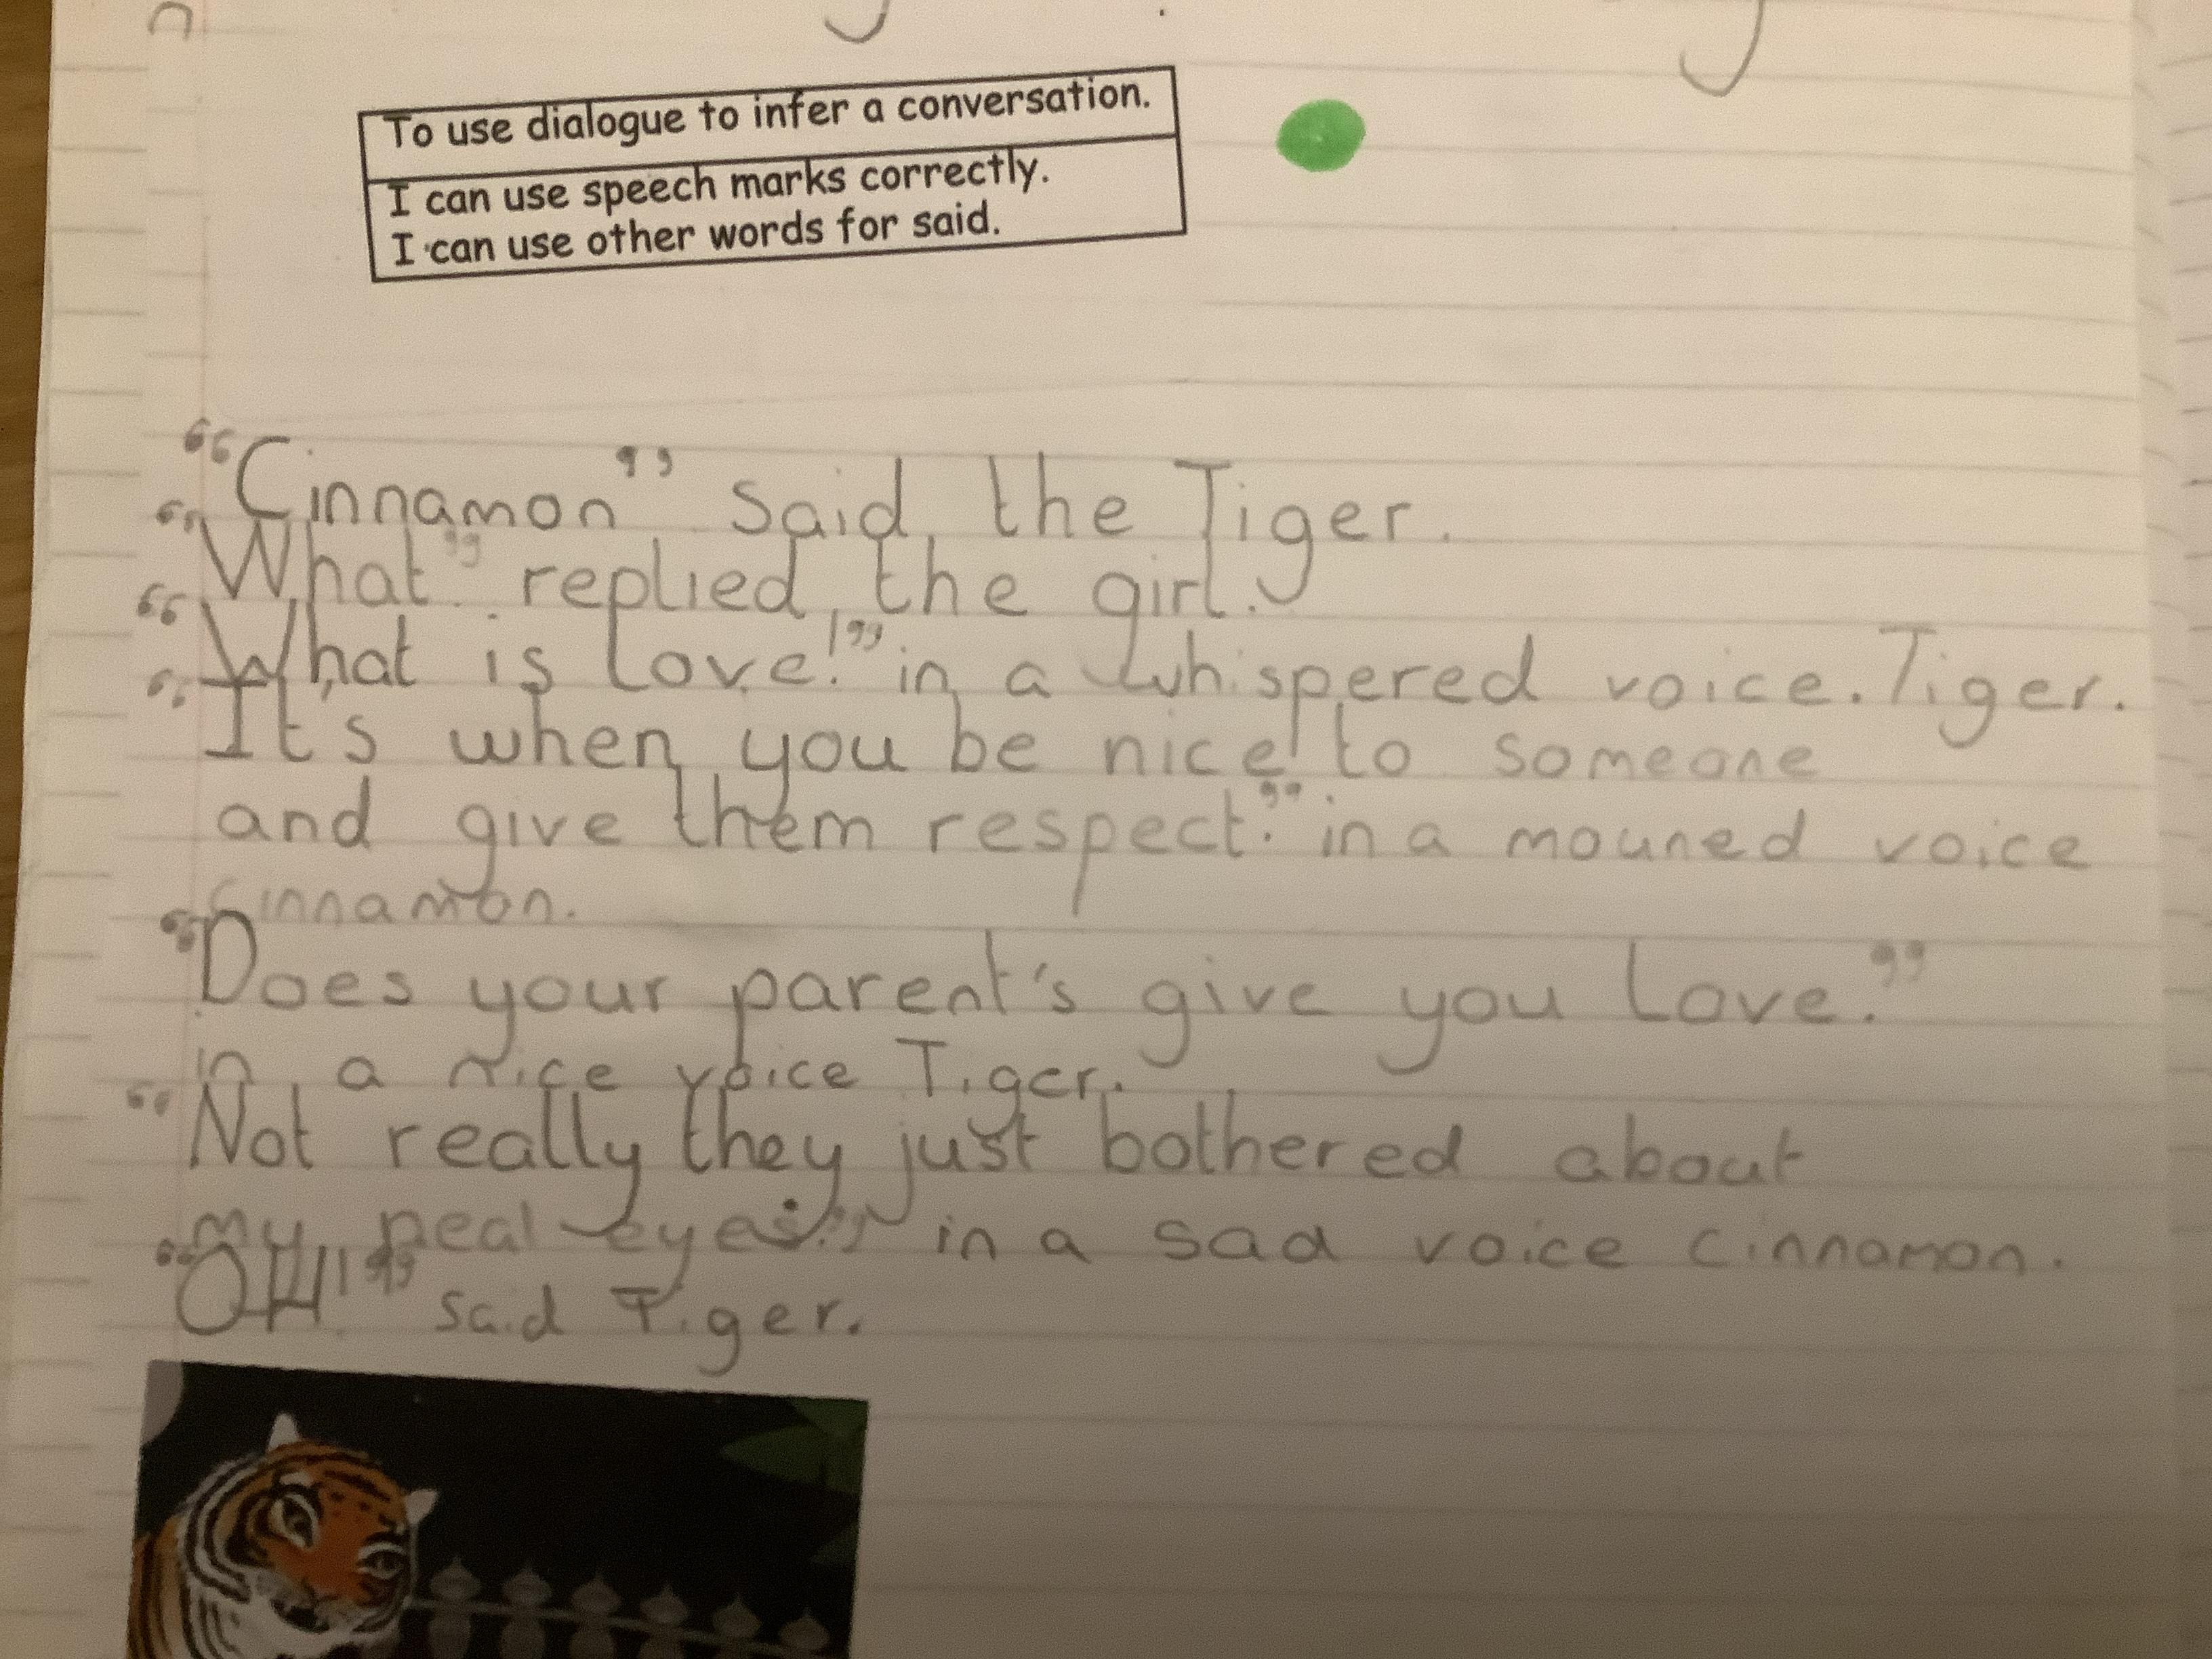 To use dialogue to infer a conversation.
I can use speech marks correctly.
I can use other words for said.
“Cinnamon” said the Tiger.
“What” replied the girl.
“What is love!” in a whispered voice. Tiger.
“It's when you be nice to someone
and give them respect.” in a mouned voice
Cinnamon.
“Does your parent's give you love.”
in a nice voice Tiger.
“Not really they just bothered about
my peal eyes.” in a sad voice cinnamon.
“OH!” said Tiger.